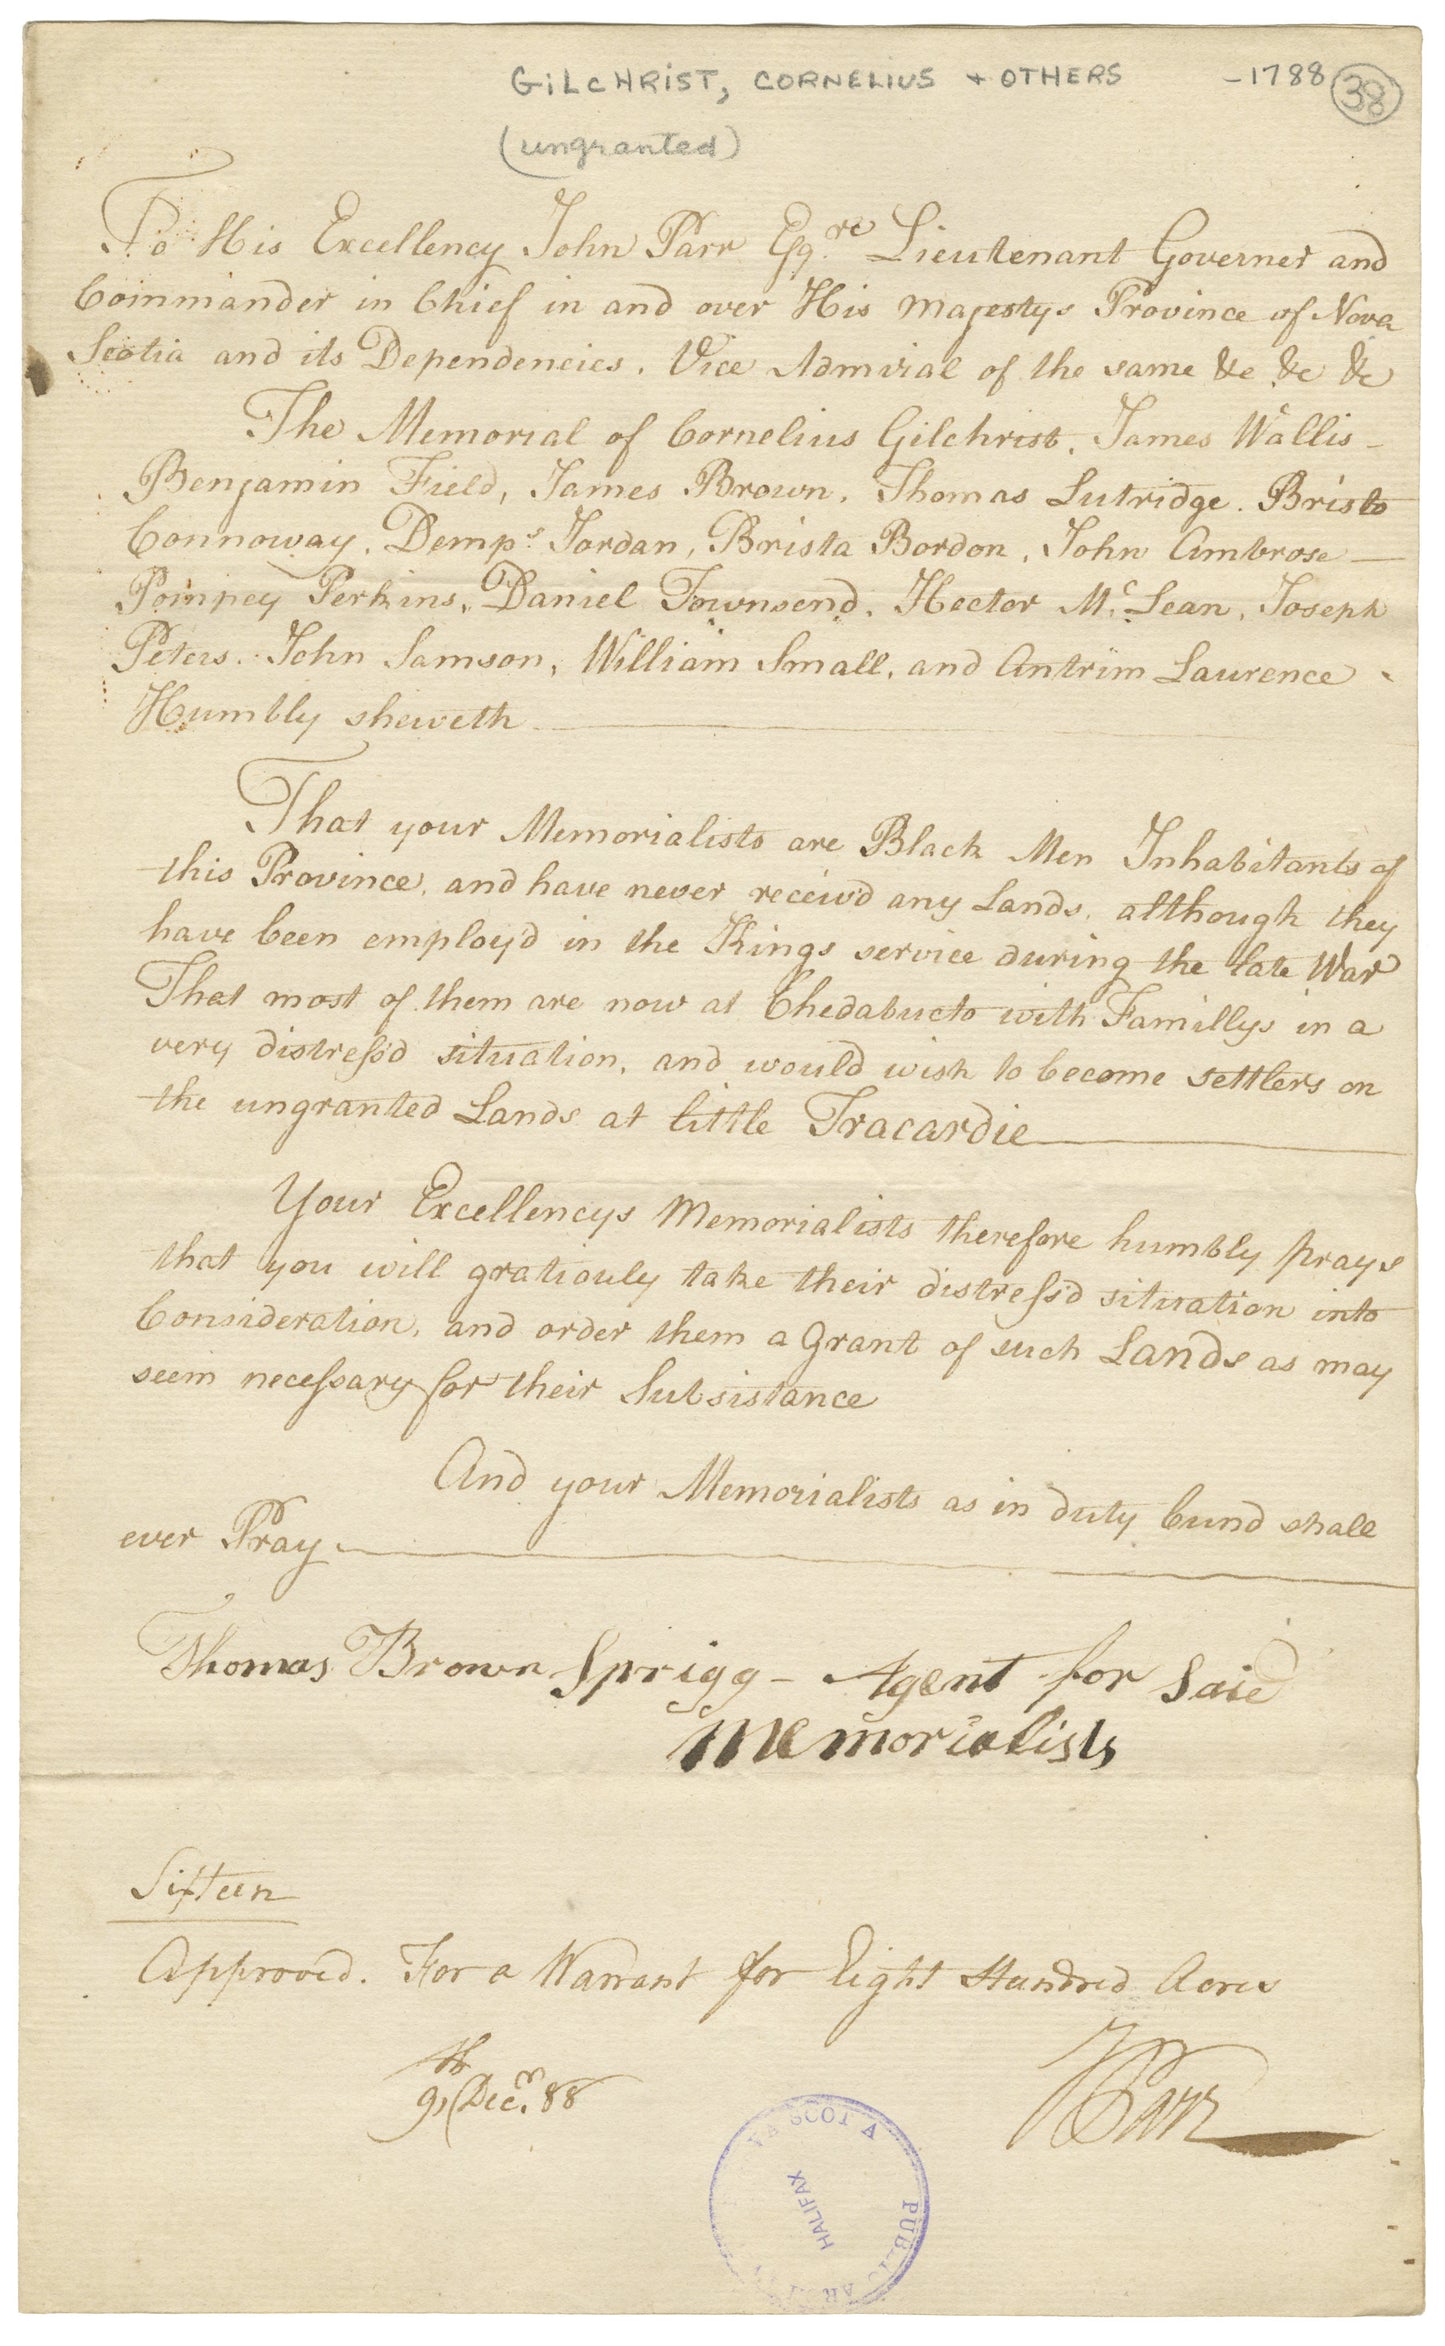 GILCHRIST, CORNELIUS + OTHERS -1788 38
(ungranted)
To His Excellency John Parr Esqre Lieutenant Governer and
Commander in Chief in and over His Majestys Province of Nova
Scotia and its Dependencies, Vice Admiral of the same &c &c &c
The Memorial of Cornelius Gilchrist, James Wallis -
Benjamin Field, James Brown, Thomas Lutridge, Bristo
Connoway, Demps. Jordan, Brista Bordon, John Ambrose —
Pompey Perkins, Daniel Townsend, Hector Mc Lean, Joseph
Peters, John Samson, William Small, and Antrim Laurence
Humbly sheweth
That your Memorialists are Black Men Inhabitants of
this Province, and have never receiv'd any Lands, although they
have been employ'd in the Kings service during the late War
That most of them are now at Chedabucto with Famillys in a
very distress'd situation, and would wish to become settlers on
the ungranted Lands at little Tracardie
Your Excellencys Memorialists therefore humbly prays
that you will gratiouly take their distress'd situation into
Consideration, and order them a Grant of such Lands as may
seem necessary for their Subsistance
And your Memorialists as in duty bund shall
ever Pray
Thomas Brown Sprigg - Agent for Said
Memorialists
Sixteen
Approved. For a Warrant for Eight Hundred Acres
9th Decr. 88 JParr
VA SCOT A
HALIFAX
PUBL